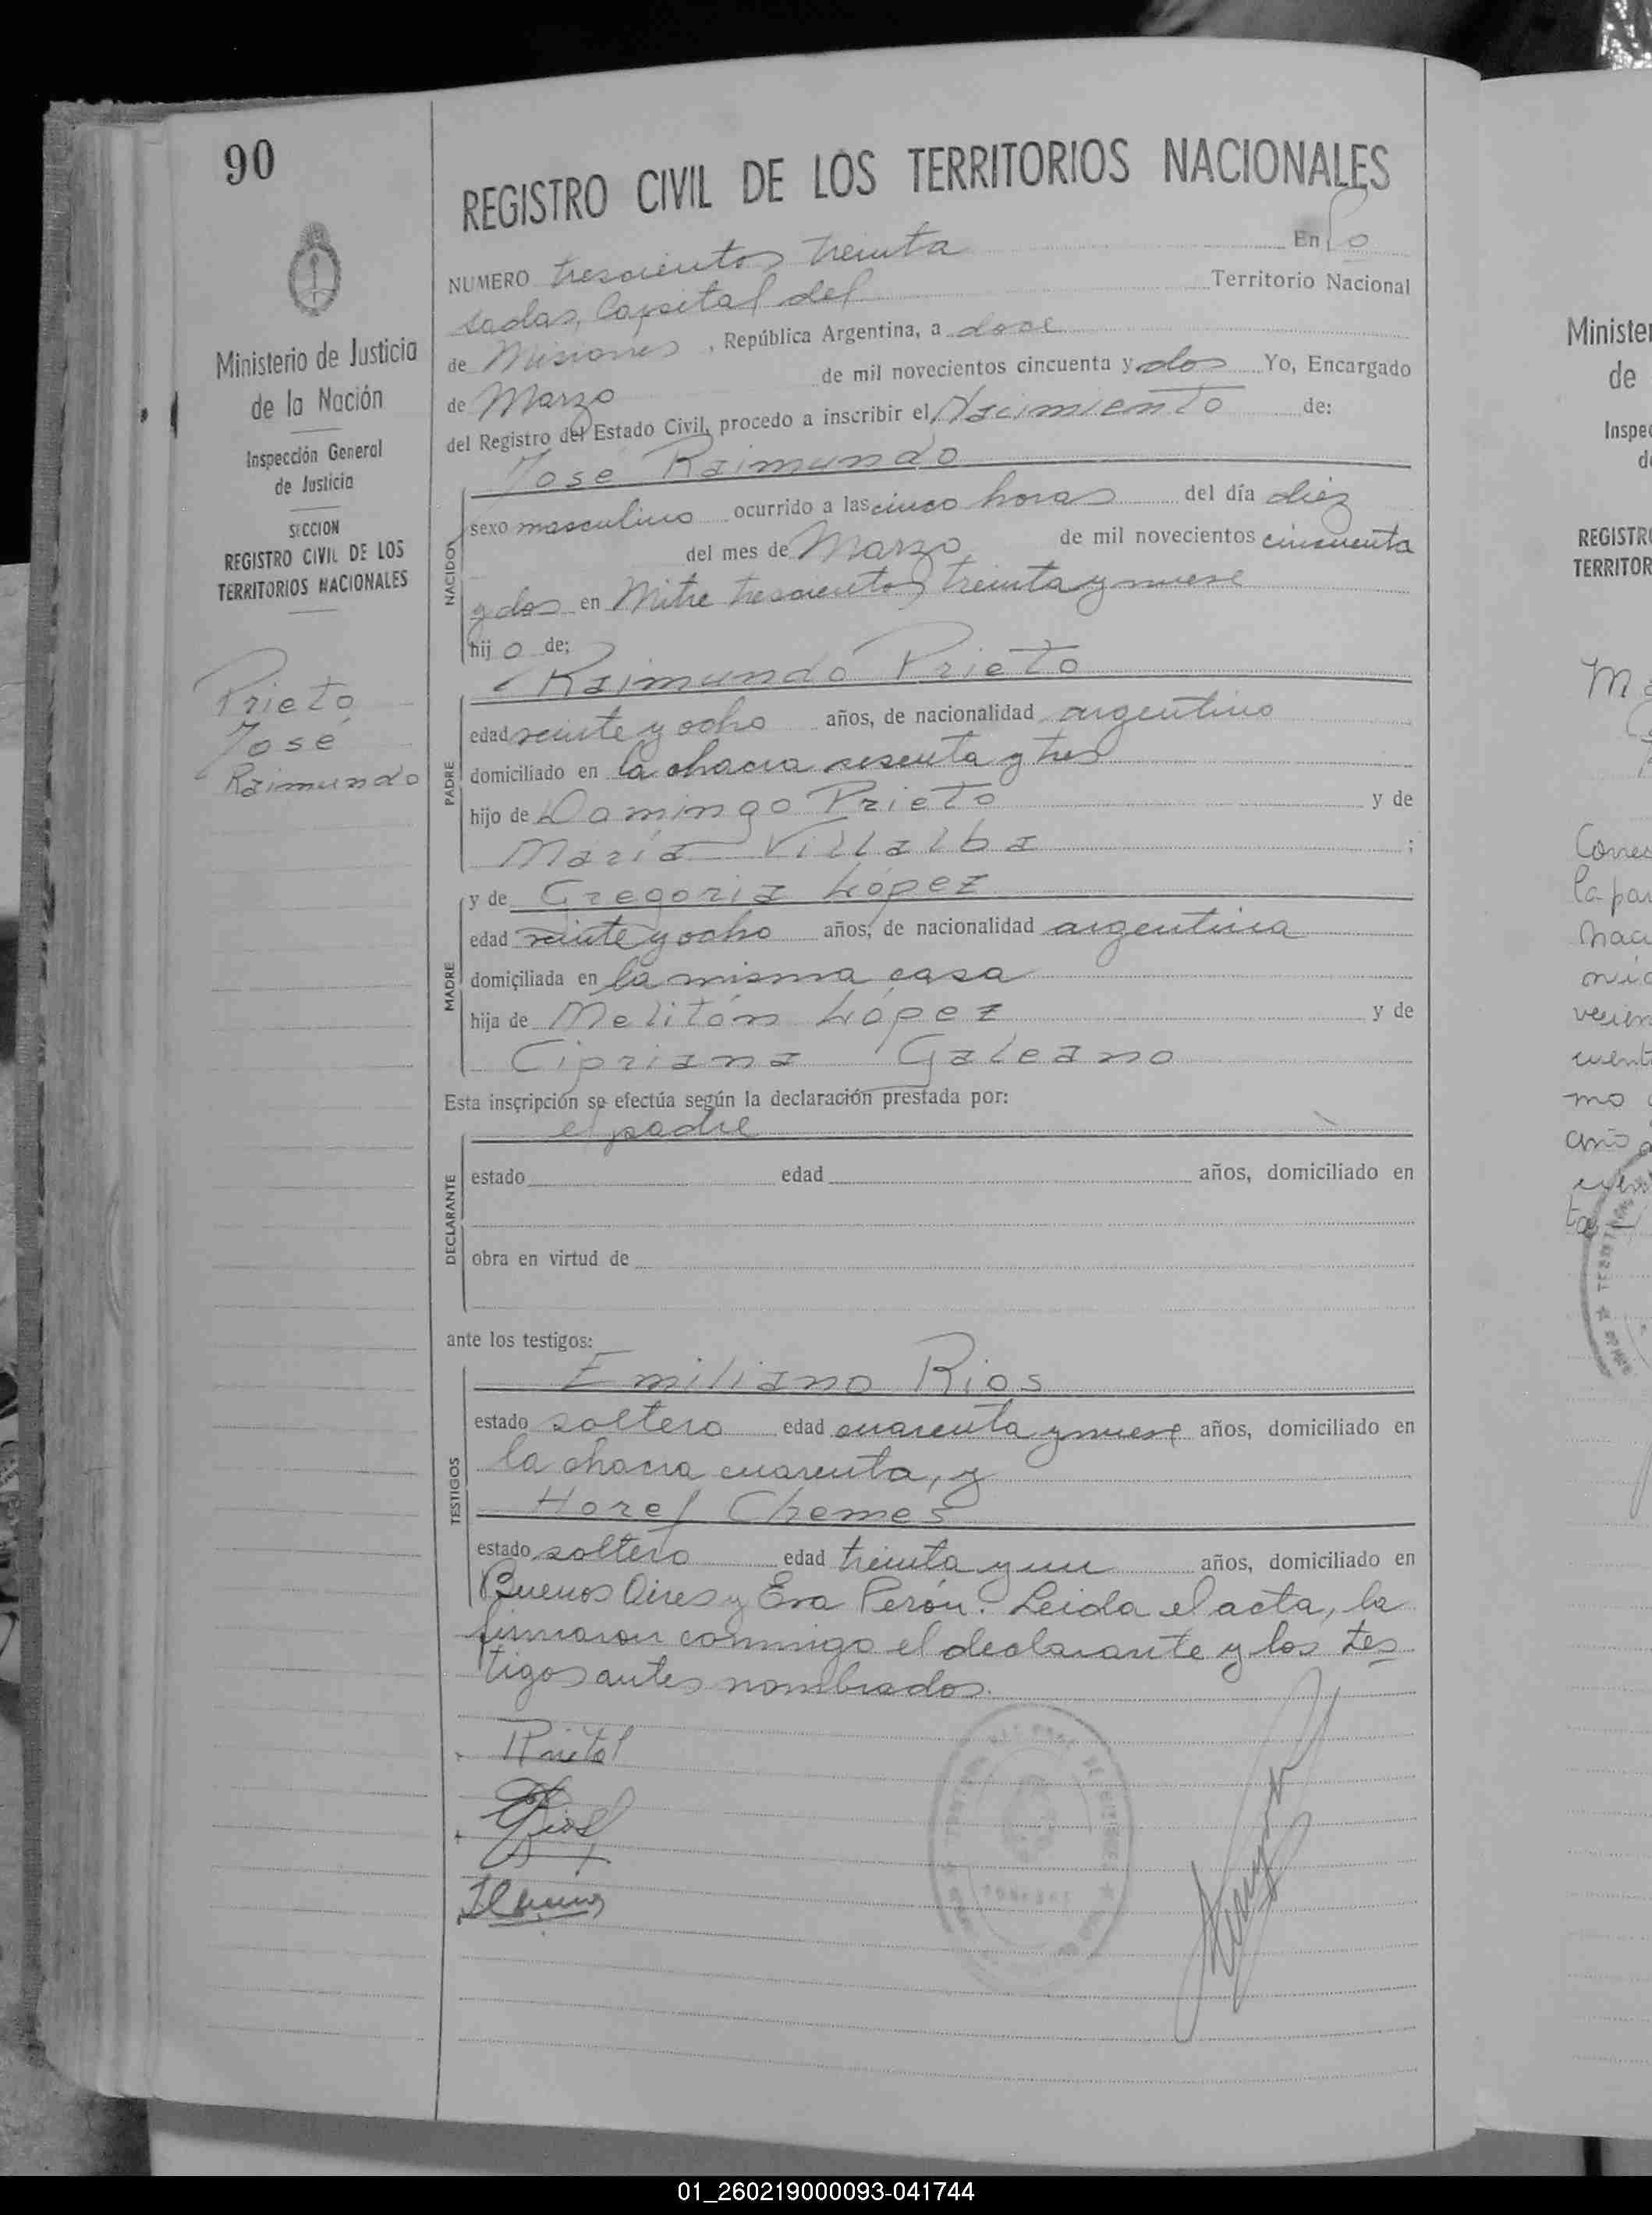 90
REGISTRO CIVIL DE LOS TERRITORIOS NACIONALES
NUMERO trescientos treinta En Po
sadas, Capital del Territorio Nacional
de Misiones, República Argentina, a doce
de Marzo de mil novecientos cincuenta y dos Yo, Encargado
del Registro del Estado Civil, procedo a inscribir el Nacimiento de:
José Raimundo
NACIDO
sexo masculino ocurrido a las cinco horas del día diez
del mes de Marzo, de mil novecientos cincuenta
y dos en Mitre trescientos treinta y nueve
hijo de;
Raimundo Prieto
PADRE
edad veinte y ocho años, de nacionalidad argentino
domiciliado en la chacra sesenta y tres
hijo de Domingo Prieto y de
María Villalba ;
y de Gregoria López
MADRE
edad veinte y ocho años, de nacionalidad argentina
domiciliada en la misma casa
hija de Melitón López y de
Cipriana Galeano
Esta inscripción se efectúa según la declaración prestada por:
el padre
DECLARANTE
estado edad años, domiciliado en
obra en virtud de
ante los testigos:
Emiliano Rios
TESTIGOS
estado soltero edad cuarenta y nueve años, domiciliado en
la chacra cuarenta, y
Horef Chemes
estado soltero edad treinta y un años, domiciliado en
Buenos Aires y Eva Perón. Leida el acta, la
firmaron conmigo el declarante y los tes
tigos antes nombrados.
Ministerio de Justicia
de la Nación
Inspección General
de Justicia
SECCION
REGISTRO CIVIL DE LOS
TERRITORIOS NACIONALES
Prieto
José
Raimundo
Minister
de
Inspec
d
REGISTR
TERRITOR
01_260219000093-041744